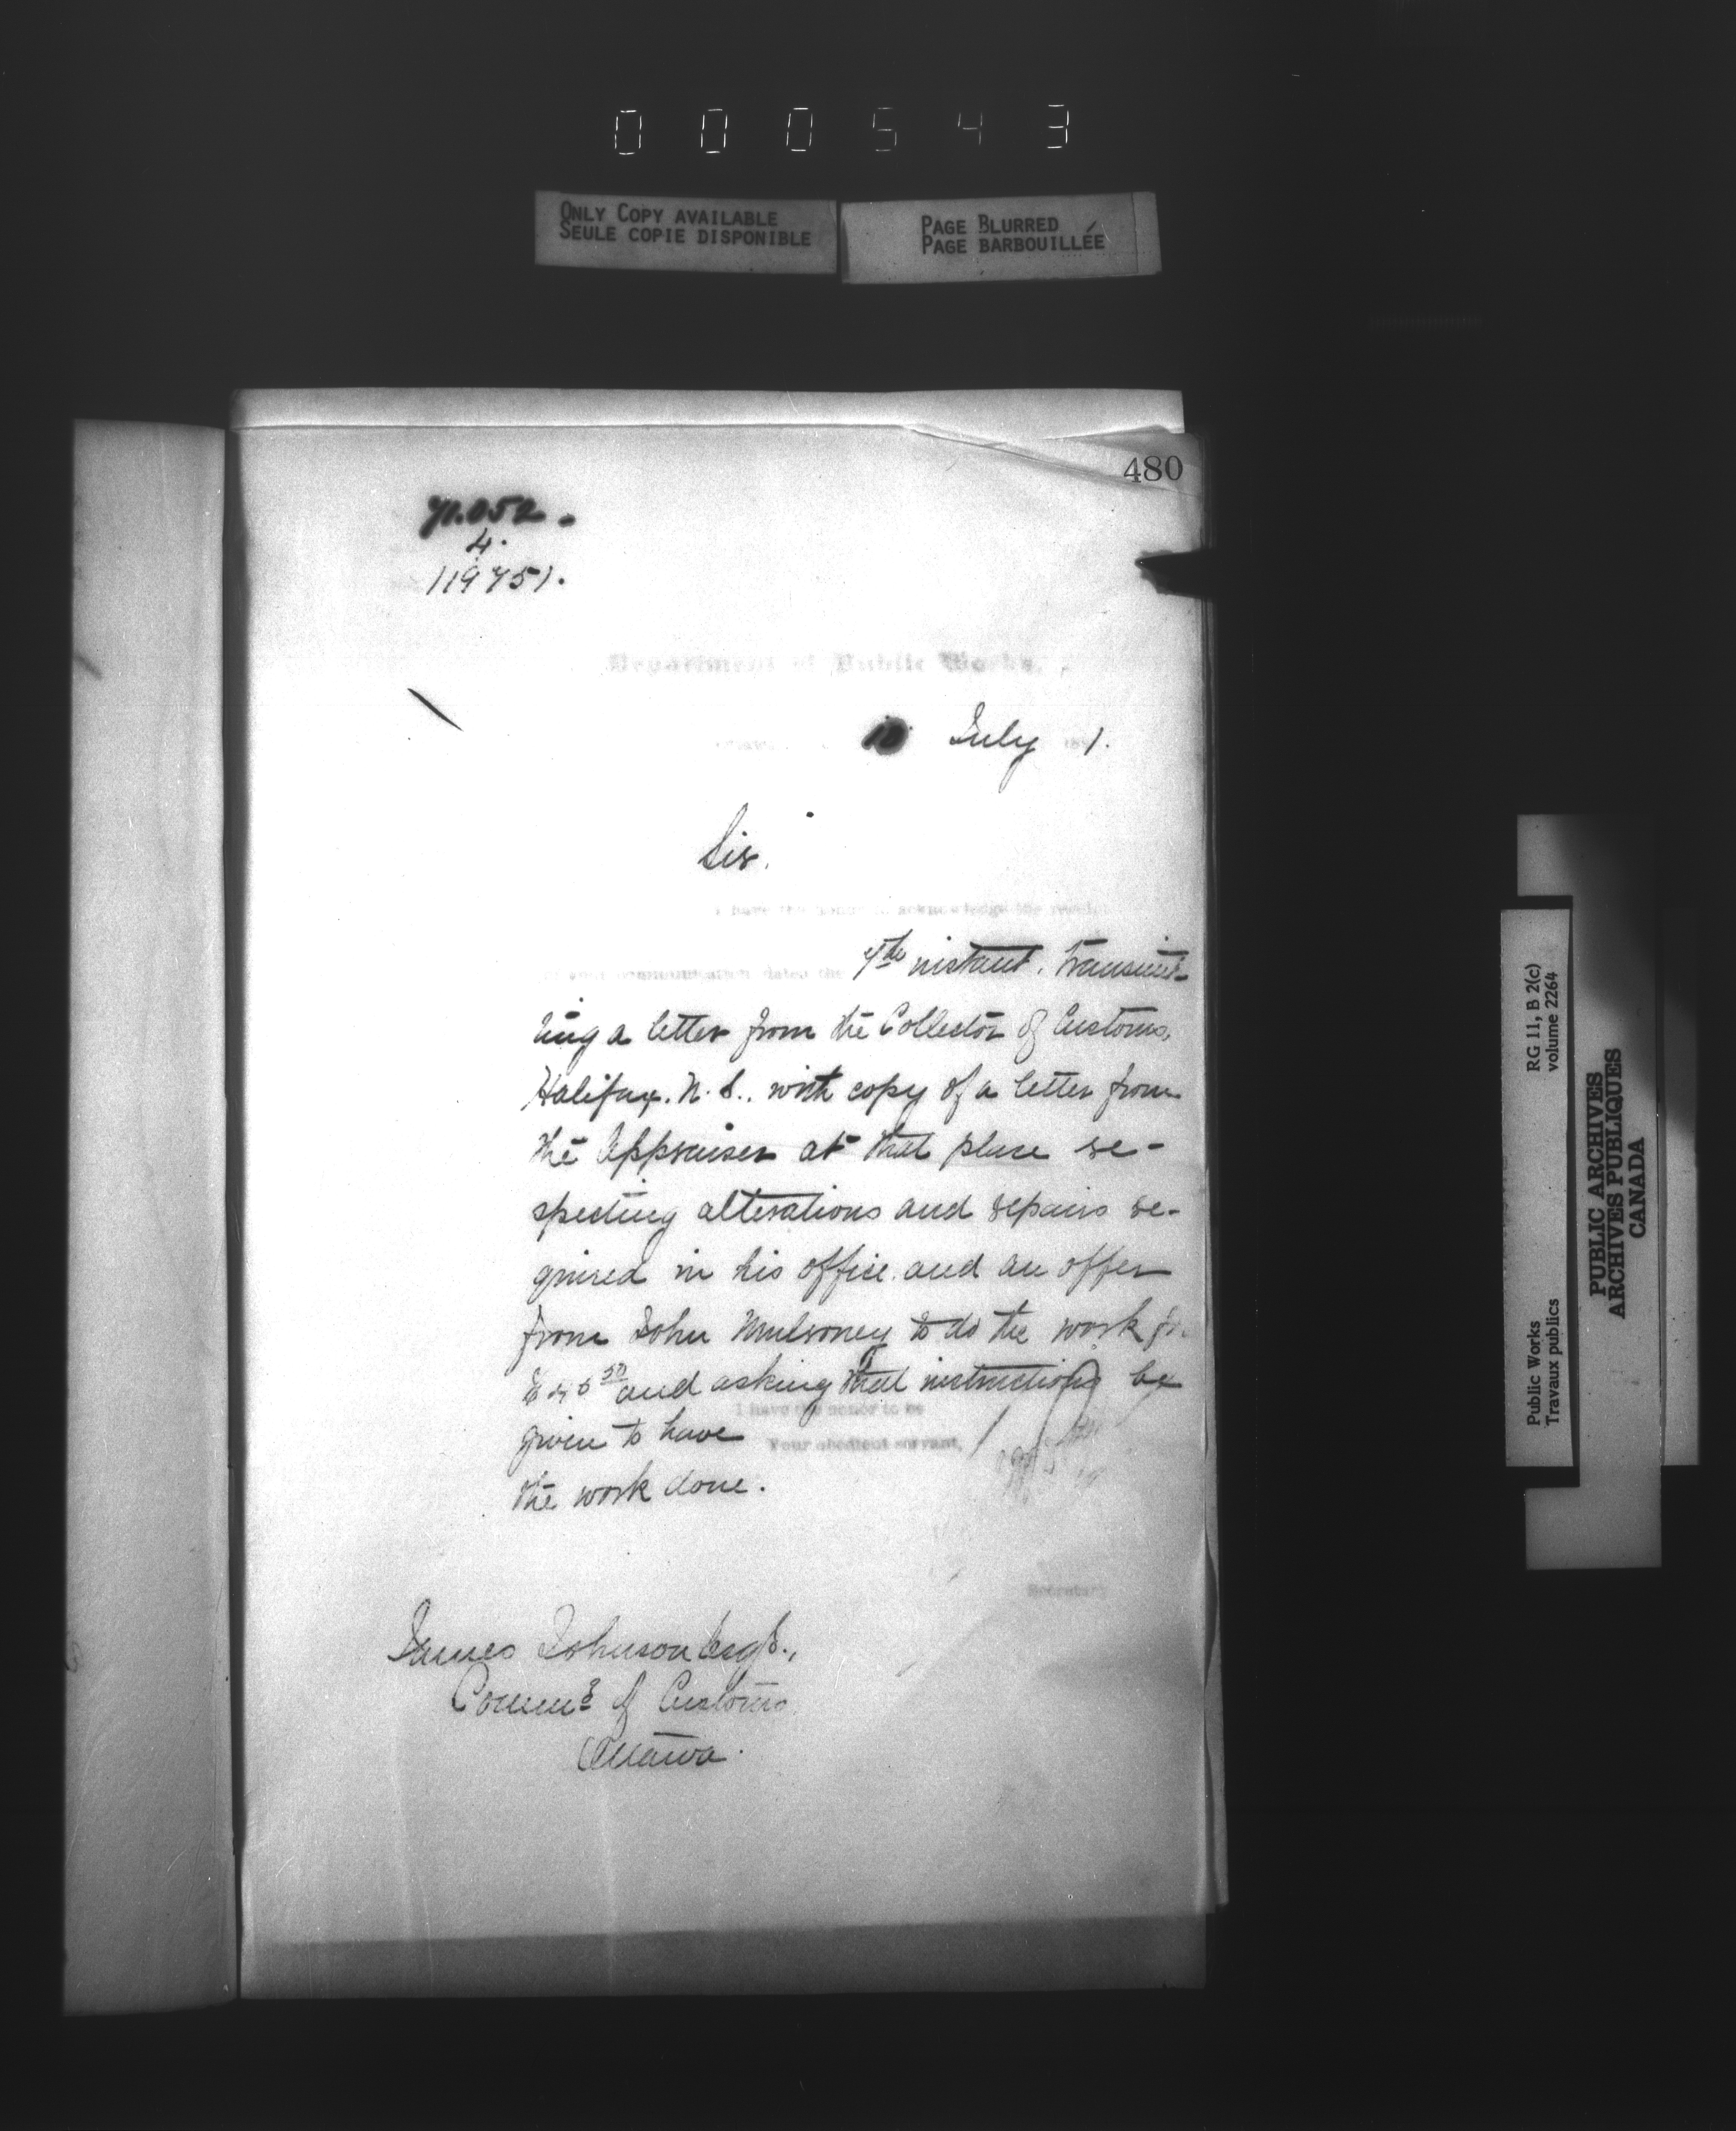 000543
ONLY COPY AVAILABLE
SEULE COPIE DISPONIBLE
PAGE BLURRED
PAGE BARBOUILLÉE
480
4.
119751.
Department of Public Works,
10 July 1891.
Sir.
I have the honor to acknowledge the receipt
of your communication dated the 7th instant. transmit-
ting a letter from the Collector of Customs,
Halifax. N. S.. with copy of a letter from
the Appraiser at that place re-
specting alterations and repairs re-
quired in his office. and an offer
from John Mulroney to do the work for
and asking that instructions be
given to have
the work done.
I have the honor to be
Your obedient servant,
Secretary
James Johnson Esqr.,
Commr. of Customs
Ottawa.
RG 11, B 2(c)
volume 2264
Public Works
Travaux publics
PUBLIC ARCHIVES
ARCHIVES PUBLIQUES
CANADA